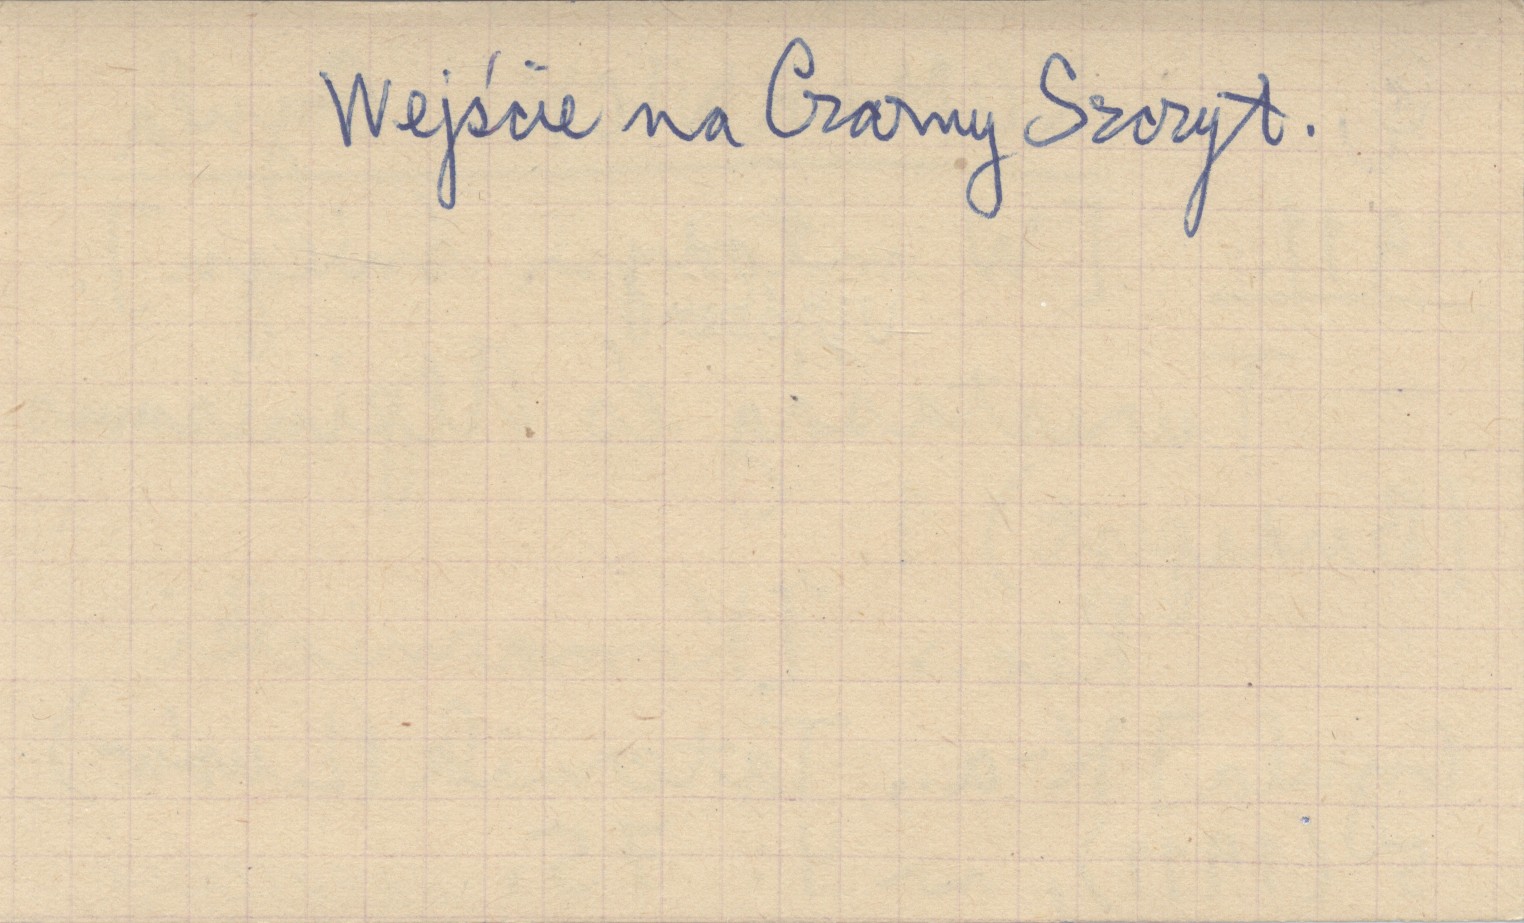 Wejście na Czarny Szczyt.